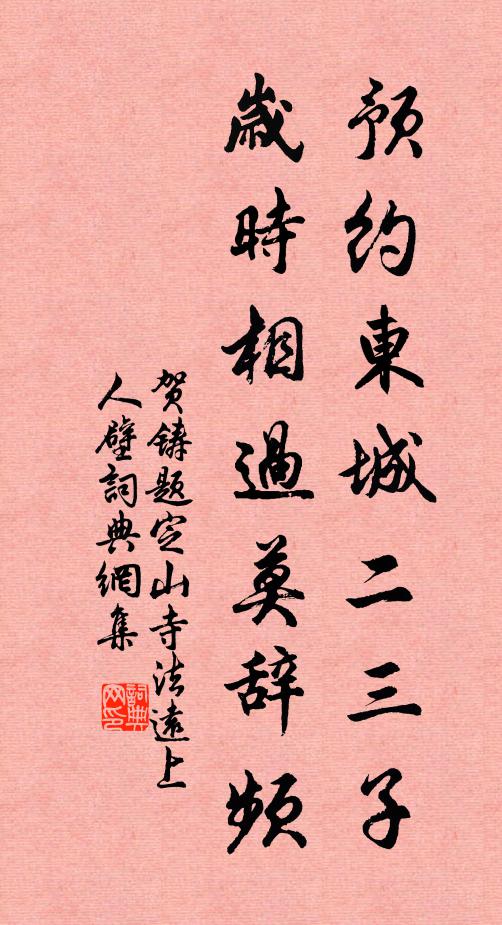 預约東城二三子
歲時相過莫辞頻
贺鑄题定山寺法遠上
人壁詞典網集
詞典網印